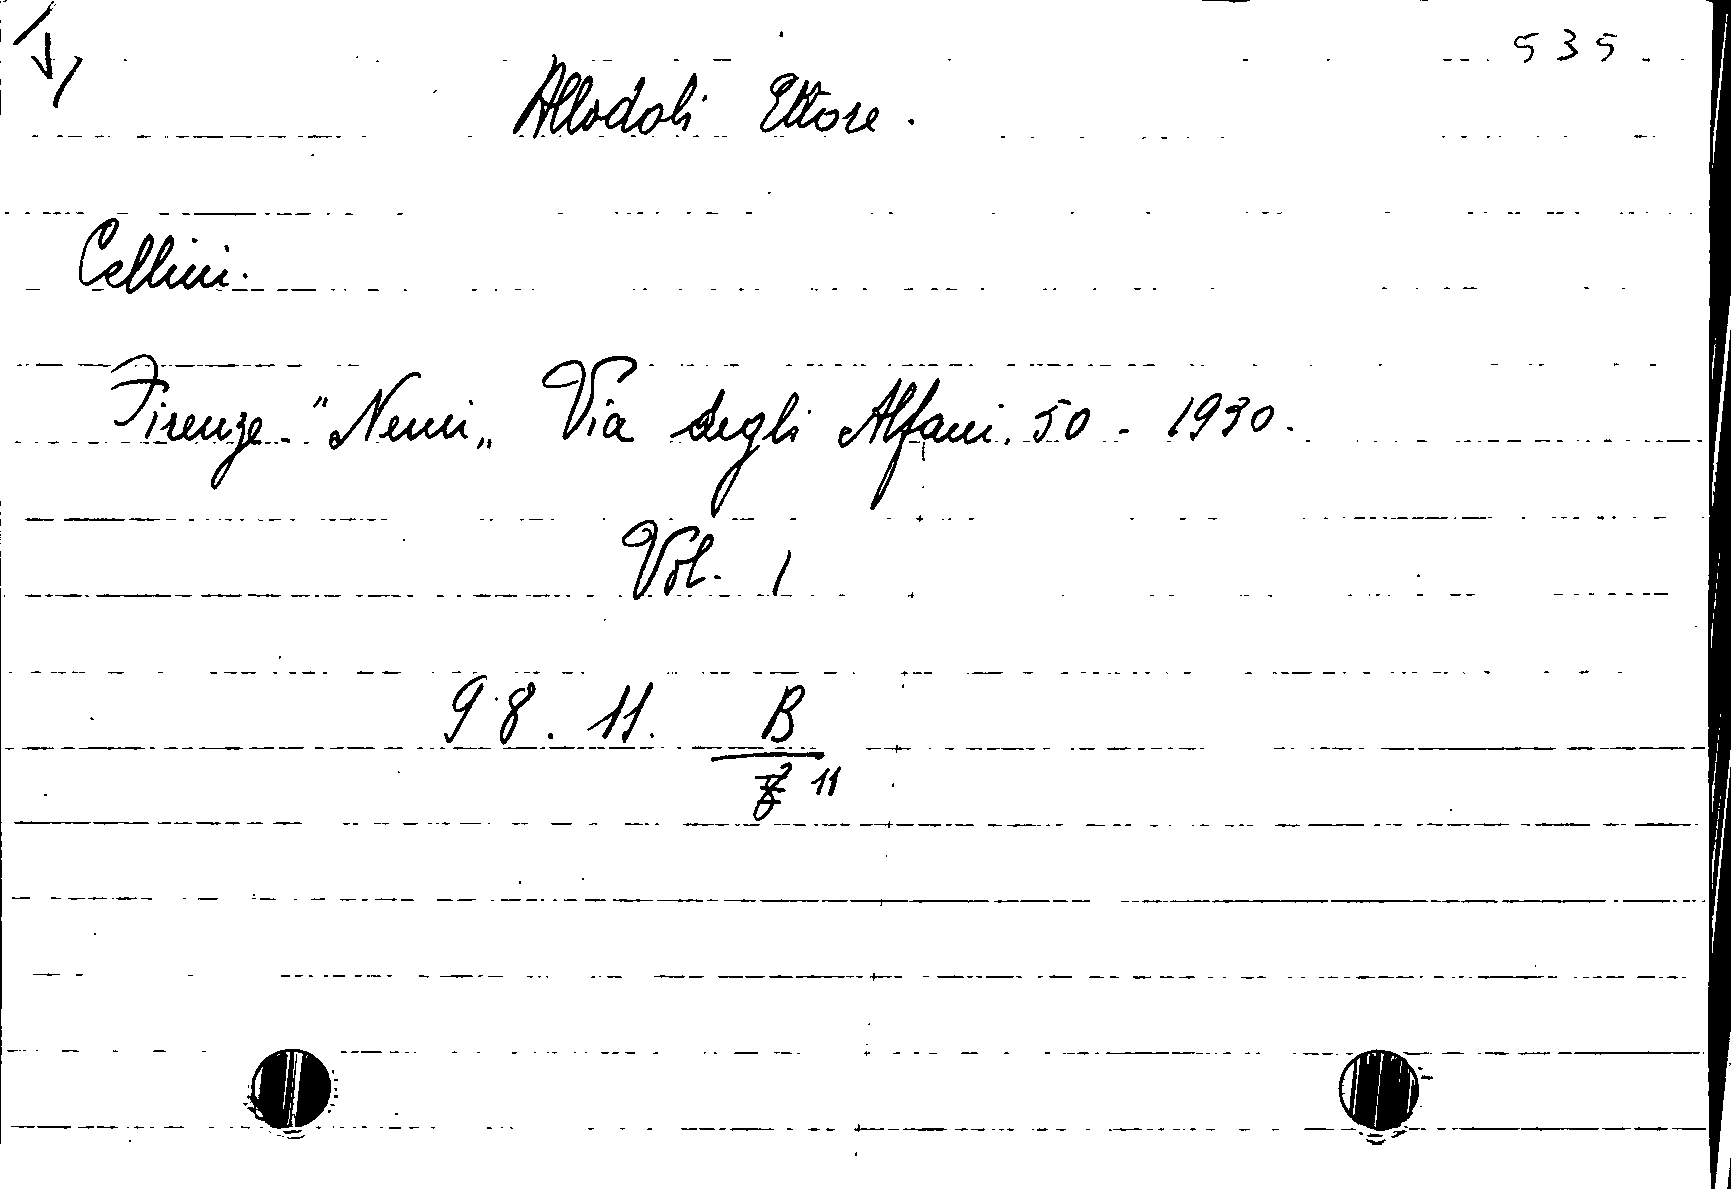 535
Allodoli Ettore.
Cellini.
Firenze - "Nemi„ Via degli Alfani. 50 - 1930.
Vol. 1
98. 11. B
11